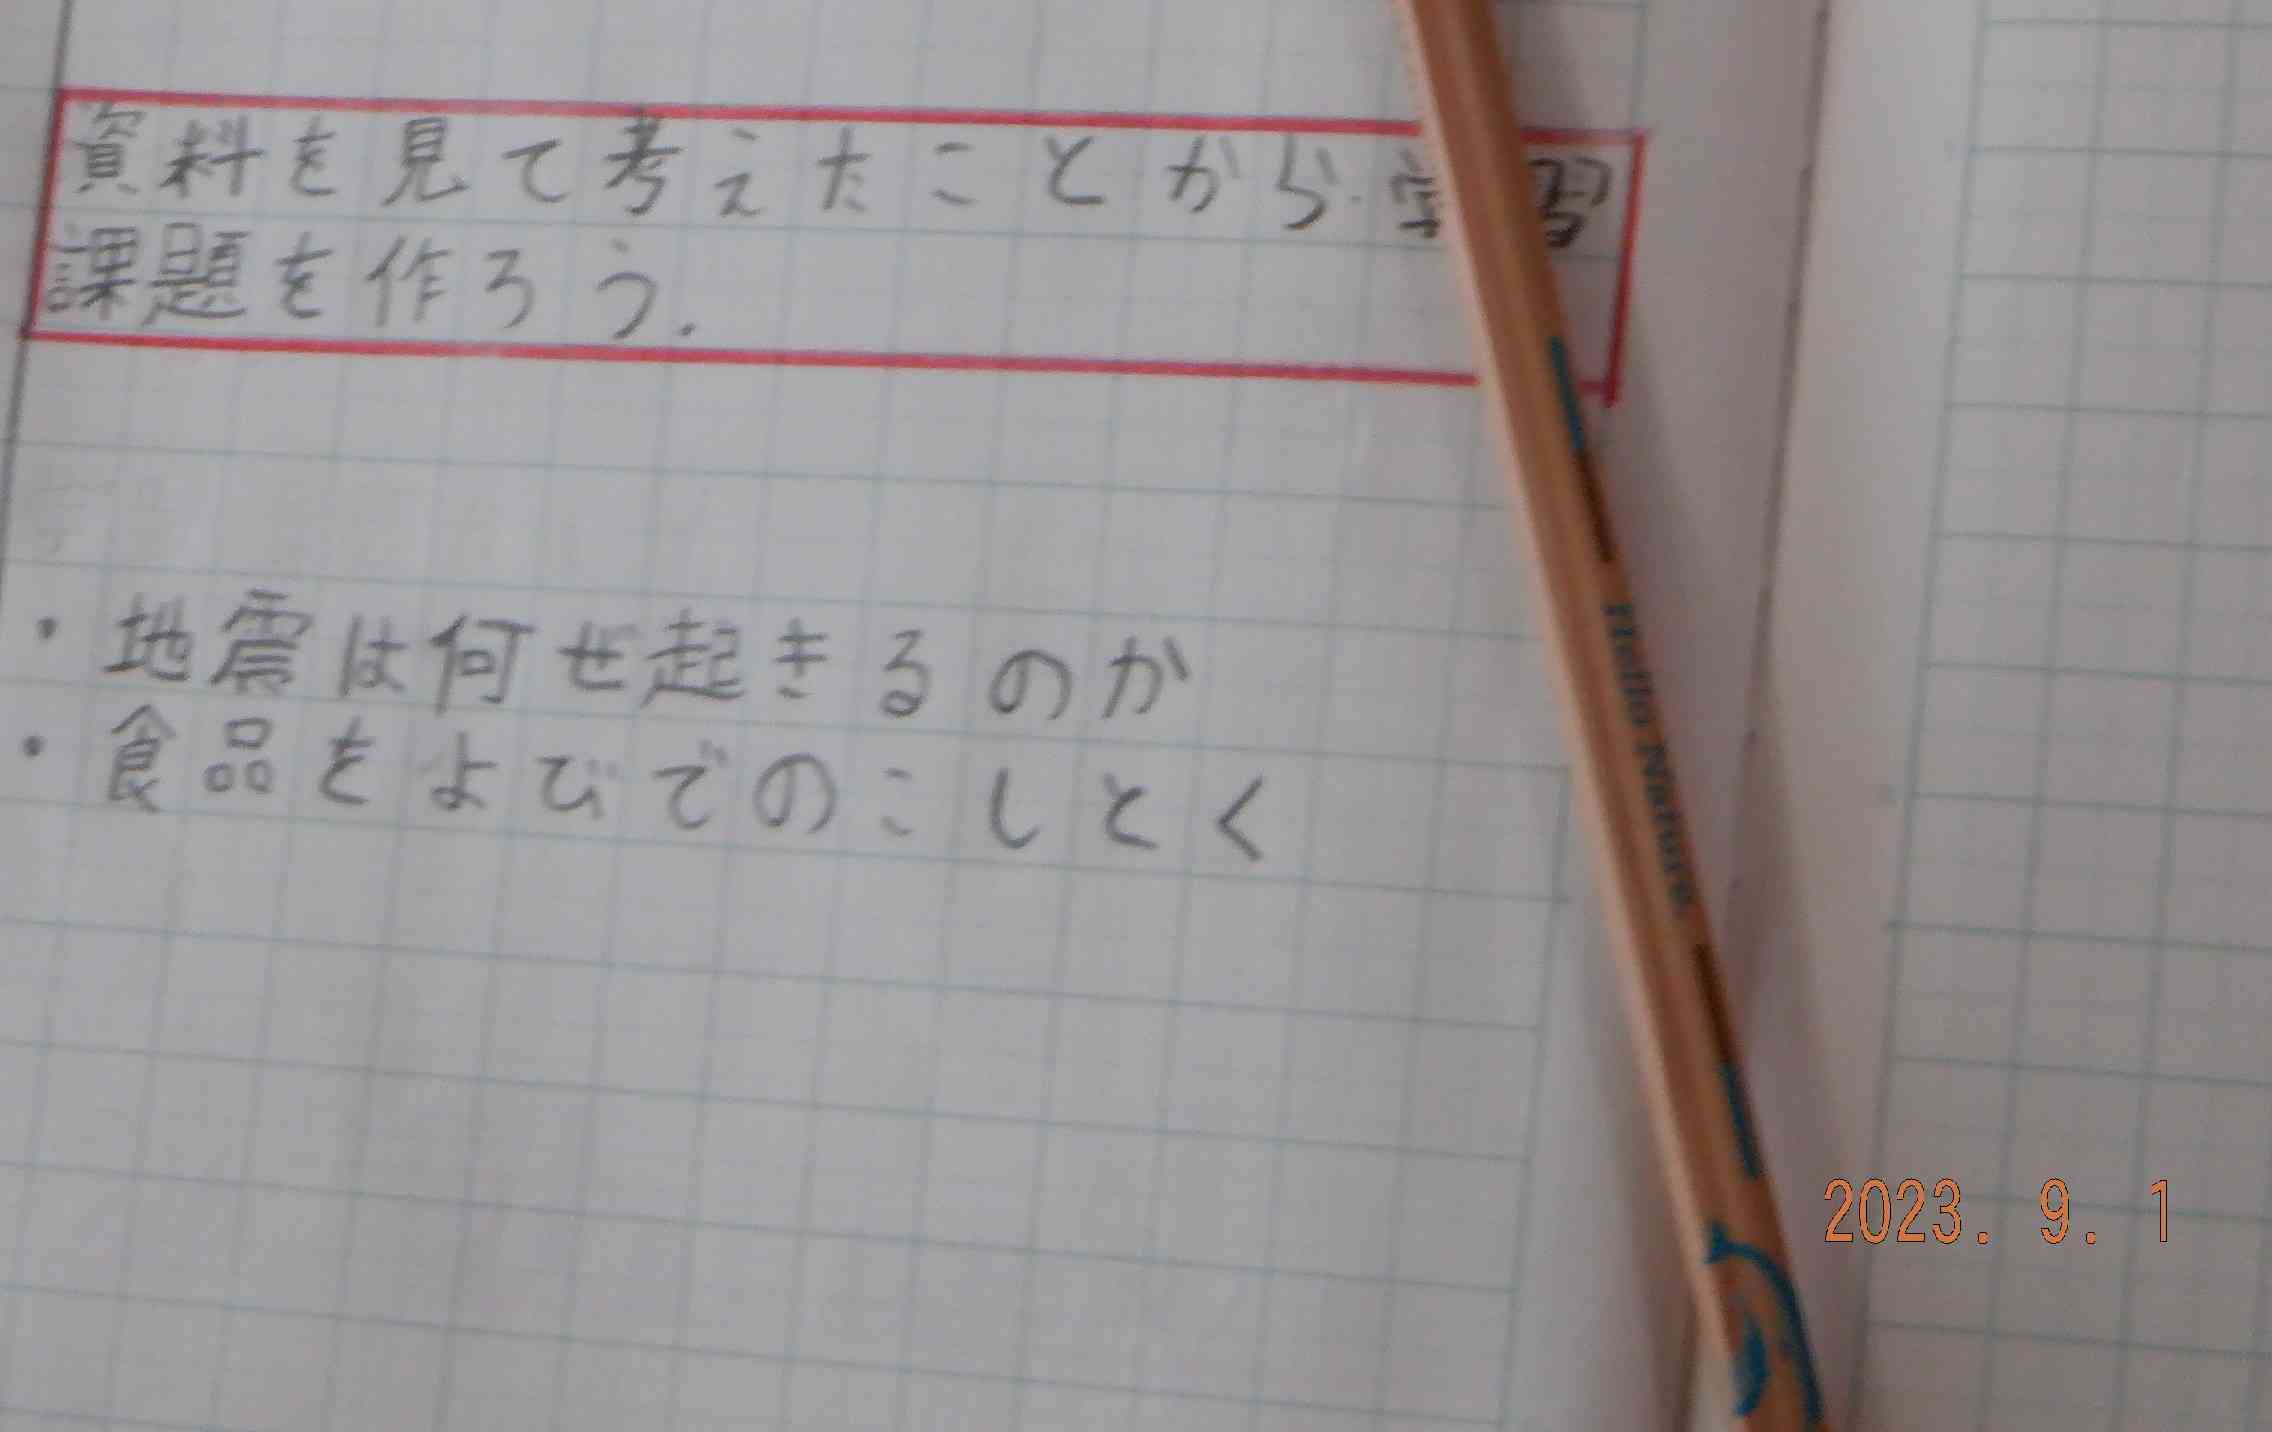 資料を見て考えたことから学習
課題を作ろう.
・地震は何ぜ起きるのか
・食品をよびでのこしとく
Hello Nature
2023. 9. 1